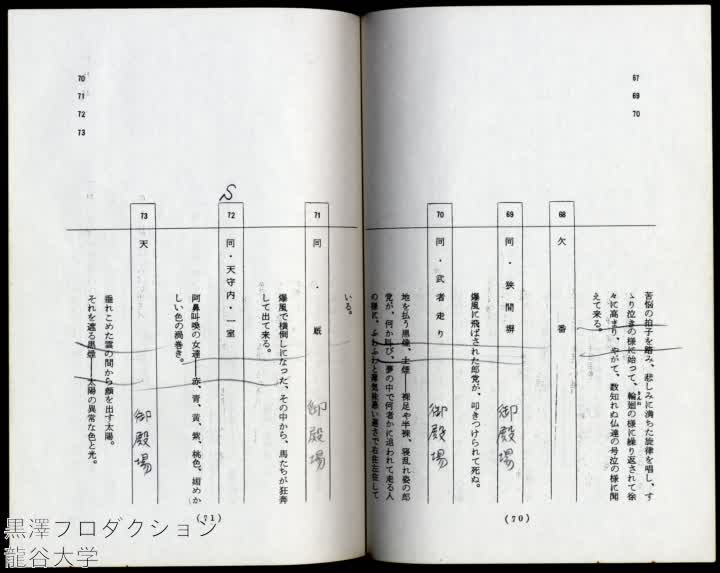 67
69
70
苦悩の拍子を踏み、悲しみに満ちた旋律を唱し、す
ゝり泣きの様に始って、輪廻の様に繰り返されて徐
々に高まり、やがて、数知れぬ仏達の号泣の様に聞
えて来る。
68 欠番
69 同・狭間塀
御殿場
爆風に飛ばされた郎党が、叩きつけられて死ぬ。
70 同・武者走り
御殿場
地を払う黒煙、土煙──裸足や半裸、寝乱れ姿の郎
党が、何か叫び、夢の中で何者かに追われて走る人
の様に、ふわふわと薄気味悪い遅さで右往左往して
(70)
70
71
72
73
いる。
71 同・厩
御殿場
爆風で横倒しになった、その中から、馬たちが狂奔
して出て来る。
S
72 同・天守内・一室
阿鼻叫喚の女達──赤、青、黄、紫、桃色、艶めか
しい色の渦巻き。
73 天
御殿場
垂れこめた雲の間から顔を出す太陽。
それを遮る黒煙──太陽の異常な色と光。
(71)
黒澤プロダクション
龍谷大学